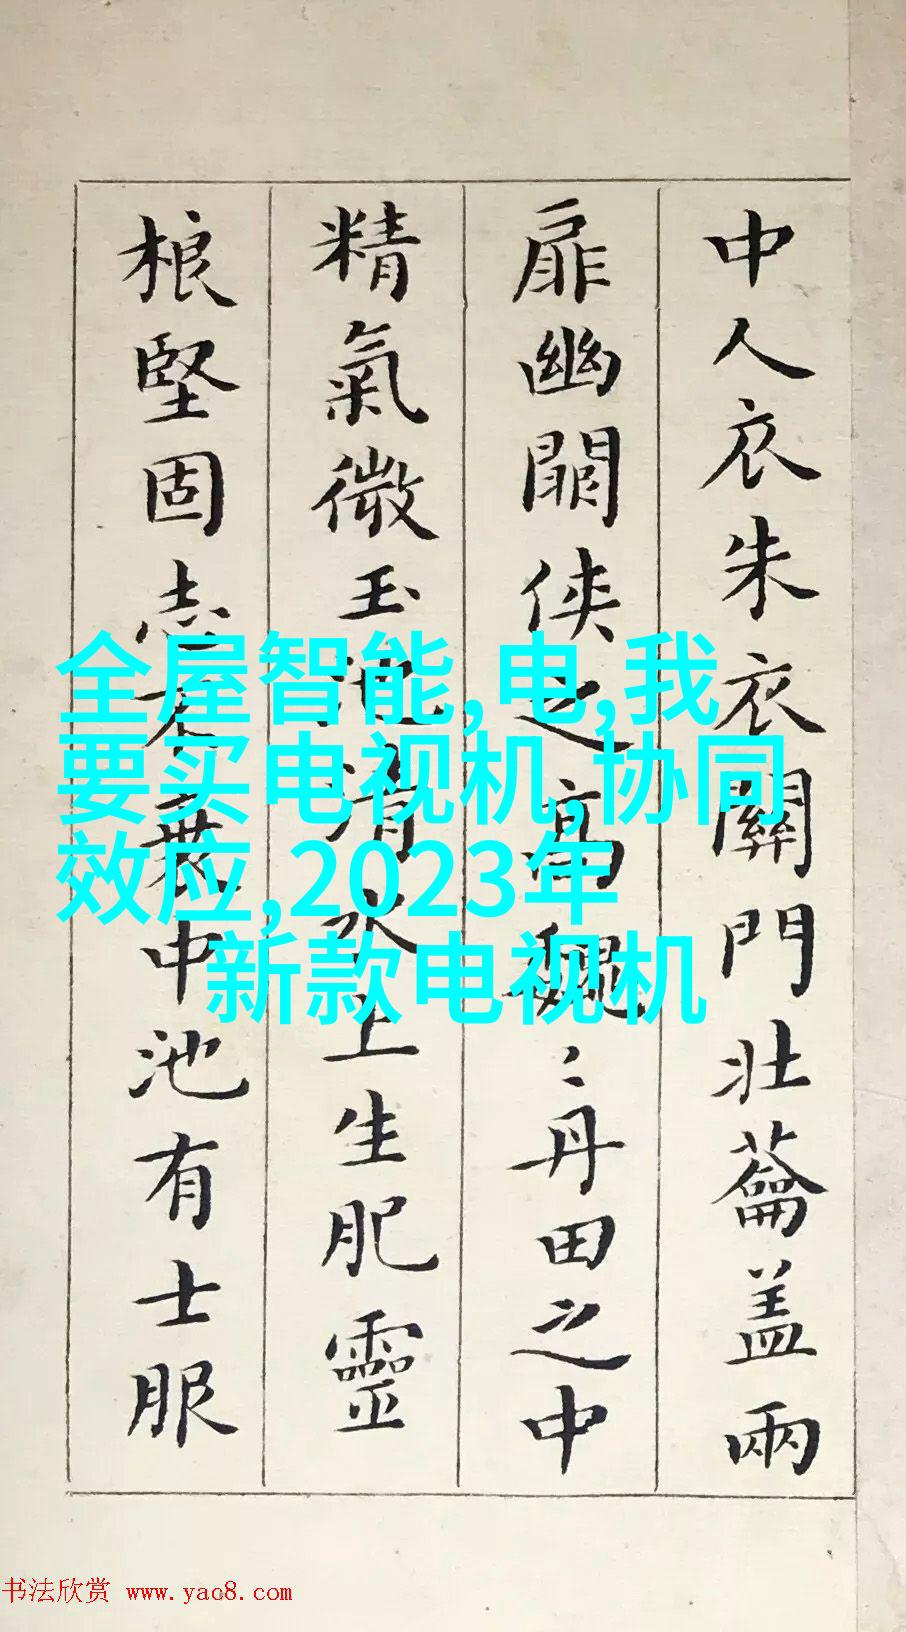 中人衣朱衣關門壯蘥盖兩
扉幽關侠之高魏〻丹田之中
精氣微玉池清水上生肥靈
根堅固志不衰中池有士服
全屋智能,电,我
要买电视机,协同
效应,2023年
新款电视机
书法欣赏 www.yac8.com